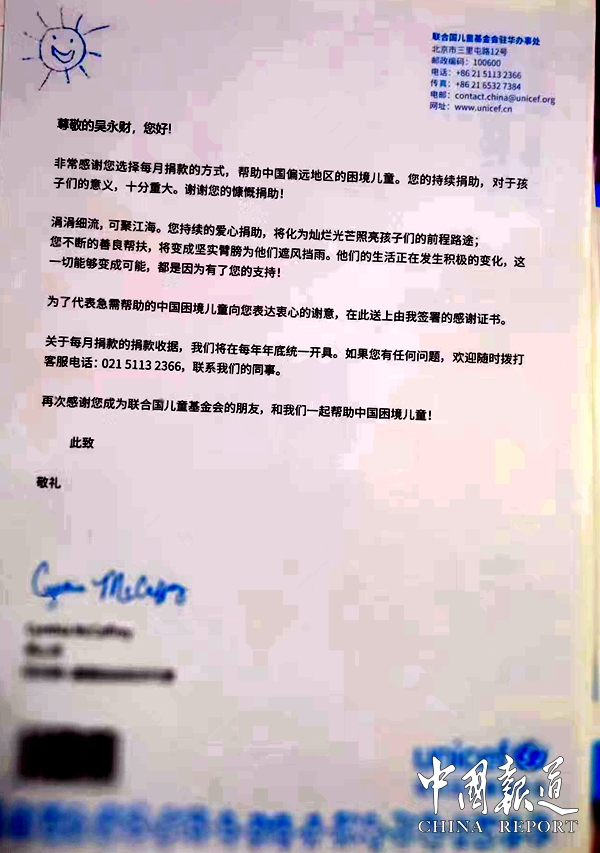 联合国儿童基金会驻华办事处
北京市三里屯路12号
邮政编码：100600
电话：+86 21 5113 2366
传真：+86 21 6532 7384
电邮：contact.china@unicef.org
网址：www.unicef.cn
尊敬的吴永财，您好！
非常感谢您选择每月捐款的方式，帮助中国偏远地区的困境儿童。您的持续捐助，对于孩
子们的意义，十分重大。谢谢您的慷慨捐助！
涓涓细流，可聚江海。您持续的爱心捐助，将化为灿烂光芒照亮孩子们的前程路途；
您不断的善良帮扶，将变成坚实臂膀为他们遮风挡雨。他们的生活正在发生积极的变化，这
一切能够变成可能，都是因为有了您的支持！
为了代表急需帮助的中国困境儿童向您表达衷心的谢意，在此送上由我签署的感谢证书。
关于每月捐款的捐款收据，我们将在每年年底统一开具。如果您有任何问题，欢迎随时拨打
客服电话：021 5113 2366，联系我们的同事。
再次感谢您成为联合国儿童基金会的朋友，和我们一起帮助中国困境儿童！
此致
敬礼
unicef
中國報道
CHINA REPORT